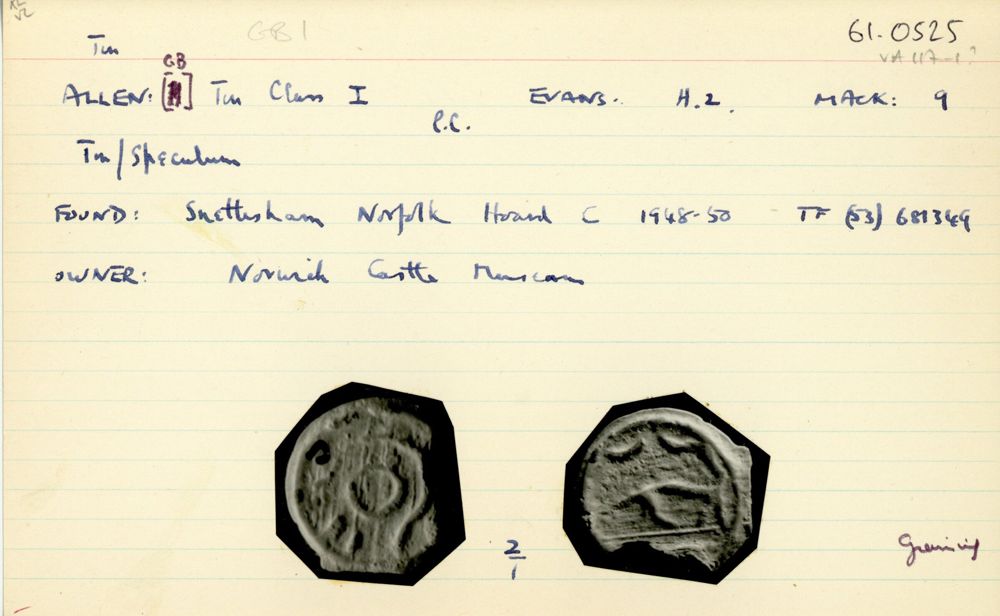 GB1 61.0525
Tin VA 117-1?
GB
ALLEN: [] Tin Class I EVANS. H.2. MACK: 9
P.C.
Tin/Speculum
FOUND: Snettisham Norfolk Hoard C 1948-50 TF (53) 681349
OWNER: Norwich Castle Museum
2/1